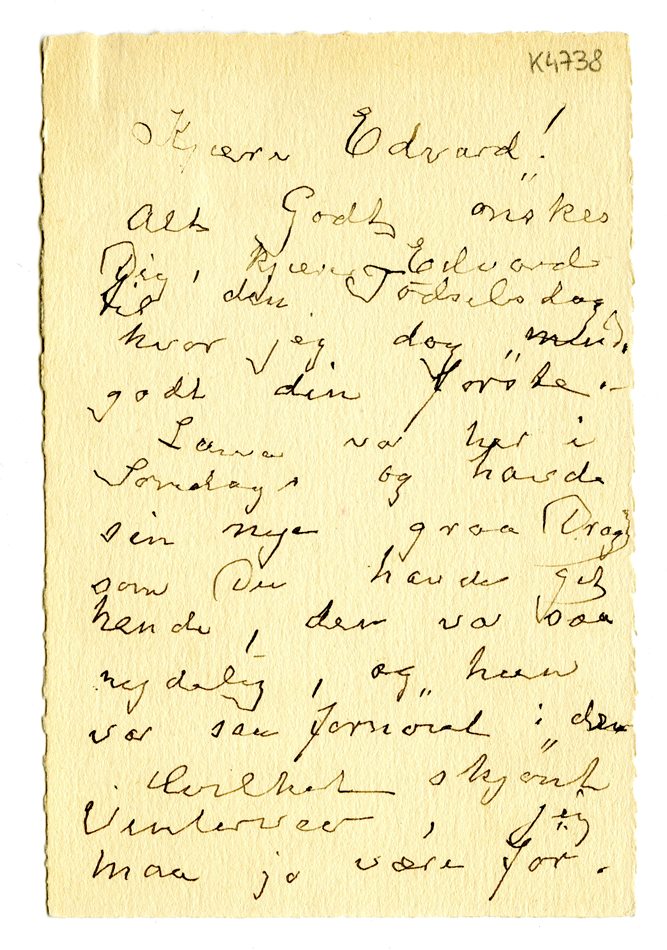 K4738
Kjære Edvard!
Alt Godt önskes
Dig, kjære Edvard
til din Födselsdag,
hvor jeg dog
godt din förste.
Laura va her i
Söndags og havde
sin nye graa Dragt
som Du havde git
hende, den va saa
nydelig, og hun
var saa fornöiet i den
Hvilket skjönt
Vinterveir, jeg
maa jo være för.